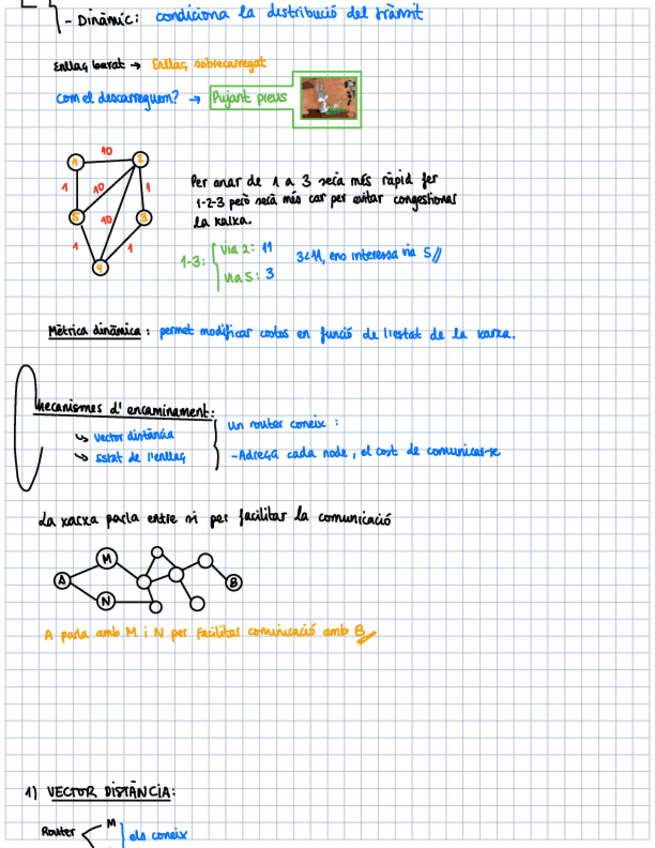 - Dinàmic: condiciona la distribució del trànsit
Enllaç barat → Enllaç sobrecarregat
Com el descarreguem? → Pujant preus
10
1 2
1 10 1
5 10 3
1 1
4
Per anar de 1 a 3 seria més ràpid fer
1-2-3 però serà més car per evitar congestionar
la xarxa.
1-3: via 2: 11
via 5: 3
3<11, ens interessa via 5//
Mètrica dinàmica: permet modificar costos en funció de l'estat de la xarxa.
Mecanismes d'encaminament:
↳ vector distància
↳ Estat de l'enllaç
un router coneix:
- Adreça cada node, el cost de comunicar-se
La xarxa parla entre si per facilitar la comunicació
M
A B
N
A parla amb M i N per facilitar comunicació amb B
1) VECTOR DISTÀNCIA:
Router M els coneix